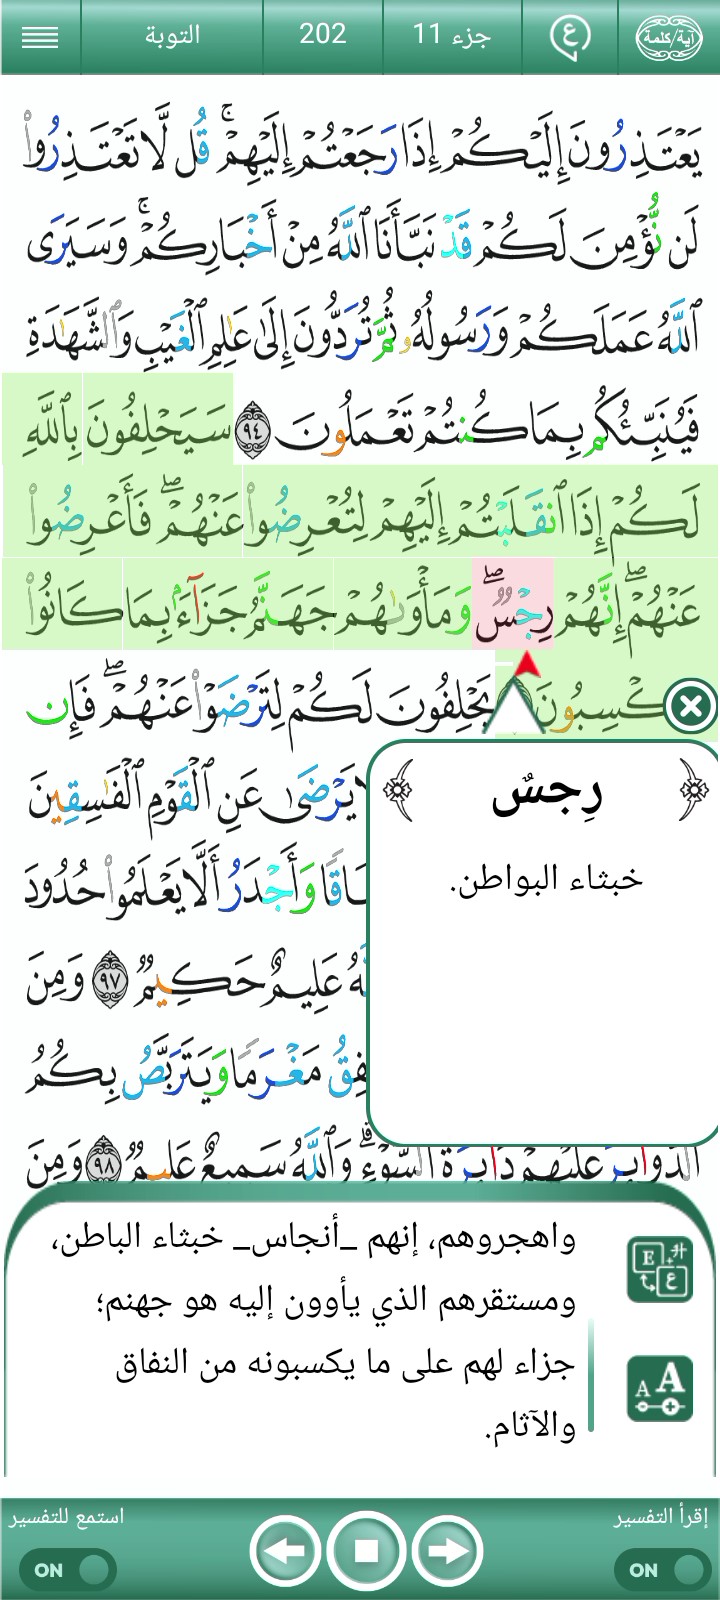 آية/كلمة
ع
جزء 11
202
التوبة
يَعْتَذِرُونَ إِلَيْكُمْ إِذَا رَجَعْتُمْ إِلَيْهِمْ ۚ قُل لَّا تَعْتَذِرُوا۟
لَن نُّؤْمِنَ لَكُمْ قَدْ نَبَّأَنَا ٱللَّهُ مِنْ أَخْبَارِكُمْ ۚ وَسَيَرَى
ٱللَّهُ عَمَلَكُمْ وَرَسُولُهُۥ ثُمَّ تُرَدُّونَ إِلَىٰ عَٰلِمِ ٱلْغَيْبِ وَٱلشَّهَٰدَةِ
فَيُنَبِّئُكُم بِمَا كُنتُمْ تَعْمَلُونَ ٩٤ سَيَحْلِفُونَ بِٱللَّهِ
لَكُمْ إِذَا ٱنقَلَبْتُمْ إِلَيْهِمْ لِتُعْرِضُوا۟ عَنْهُمْ ۖ فَأَعْرِضُوا۟
عَنْهُمْ ۖ إِنَّهُمْ رِجْسٌ ۖ وَمَأْوَىٰهُمْ جَهَنَّمُ جَزَآءًۢ بِمَا كَانُوا۟
كْسِبُونَ يَحْلِفُونَ لَكُمْ لِتَرْضَوْا۟ عَنْهُمْ ۖ فَإِن
يَرْضَىٰ عَنِ ٱلْقَوْمِ ٱلْفَٰسِقِينَ
وَأَجْدَرُ أَلَّا يَعْلَمُوا۟ حُدُودَ
عَلِيمٌ حَكِيمٌ ٩٧ وَمِنَ
مَغْرَمًا وَيَتَرَبَّصُ بِكُمُ
ٱلدَّوَآئِرَ ۚ عَلَيْهِمْ دَآئِرَةُ ٱلسَّوْءِ ۗ وَٱللَّهُ سَمِيعٌ عَلِيمٌ ٩٨ وَمِنَ
رِجسٌ
خبثاء البواطن.
واهجروهم، إنهم _أنجاس_ خبثاء الباطن،
ومستقرهم الذي يأوون إليه هو جهنم؛
جزاء لهم على ما يكسبونه من النفاق
والآثام.
E ع
A A
إقرأ التفسير
ON
استمع للتفسير
ON